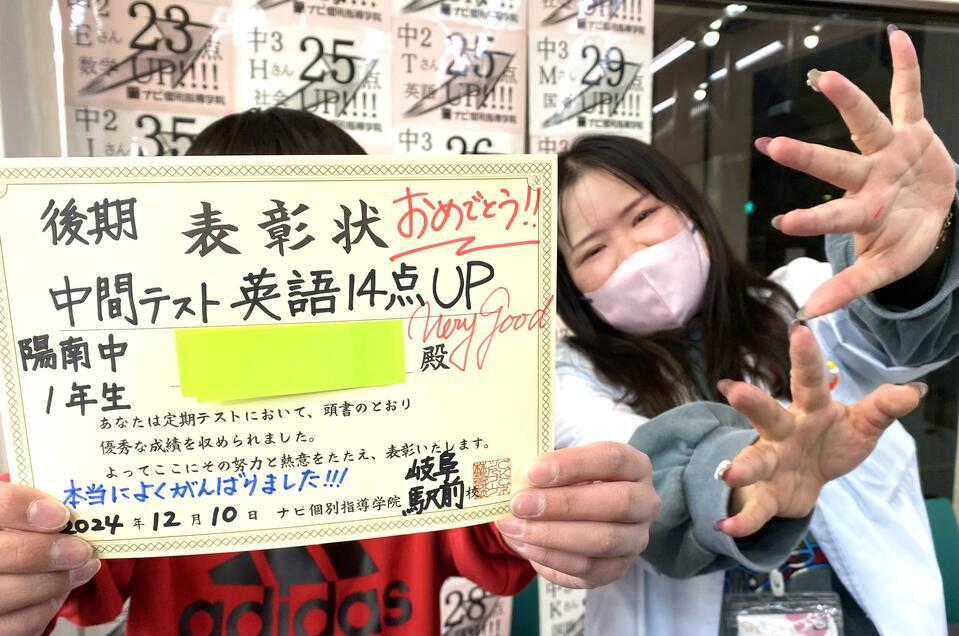 中2
Eさん
23点
数学
UP!!!!
ナビ個別指導学院
中3
Hさん
25点
社会
UP!!!!
ナビ個別指導学院
中2
Tさん
25点
英語
UP!!!!
ナビ個別指導学院
中3
Mさん
29点
国語
UP!!!!
ナビ個別指導学院
中2
35
中3
26
後期 表彰状 おめでとう!!
中間テスト 英語14点UP
Very Good
陽南中
1年生
殿
あなたは定期テストにおいて、頭書のとおり
優秀な成績を収められました。
よってここにその努力と熱意をたたえ、表彰いたします。
本当によくがんばりました!!!
2024年12月10日 ナビ個別指導学院 岐阜駅前校
adidas
28